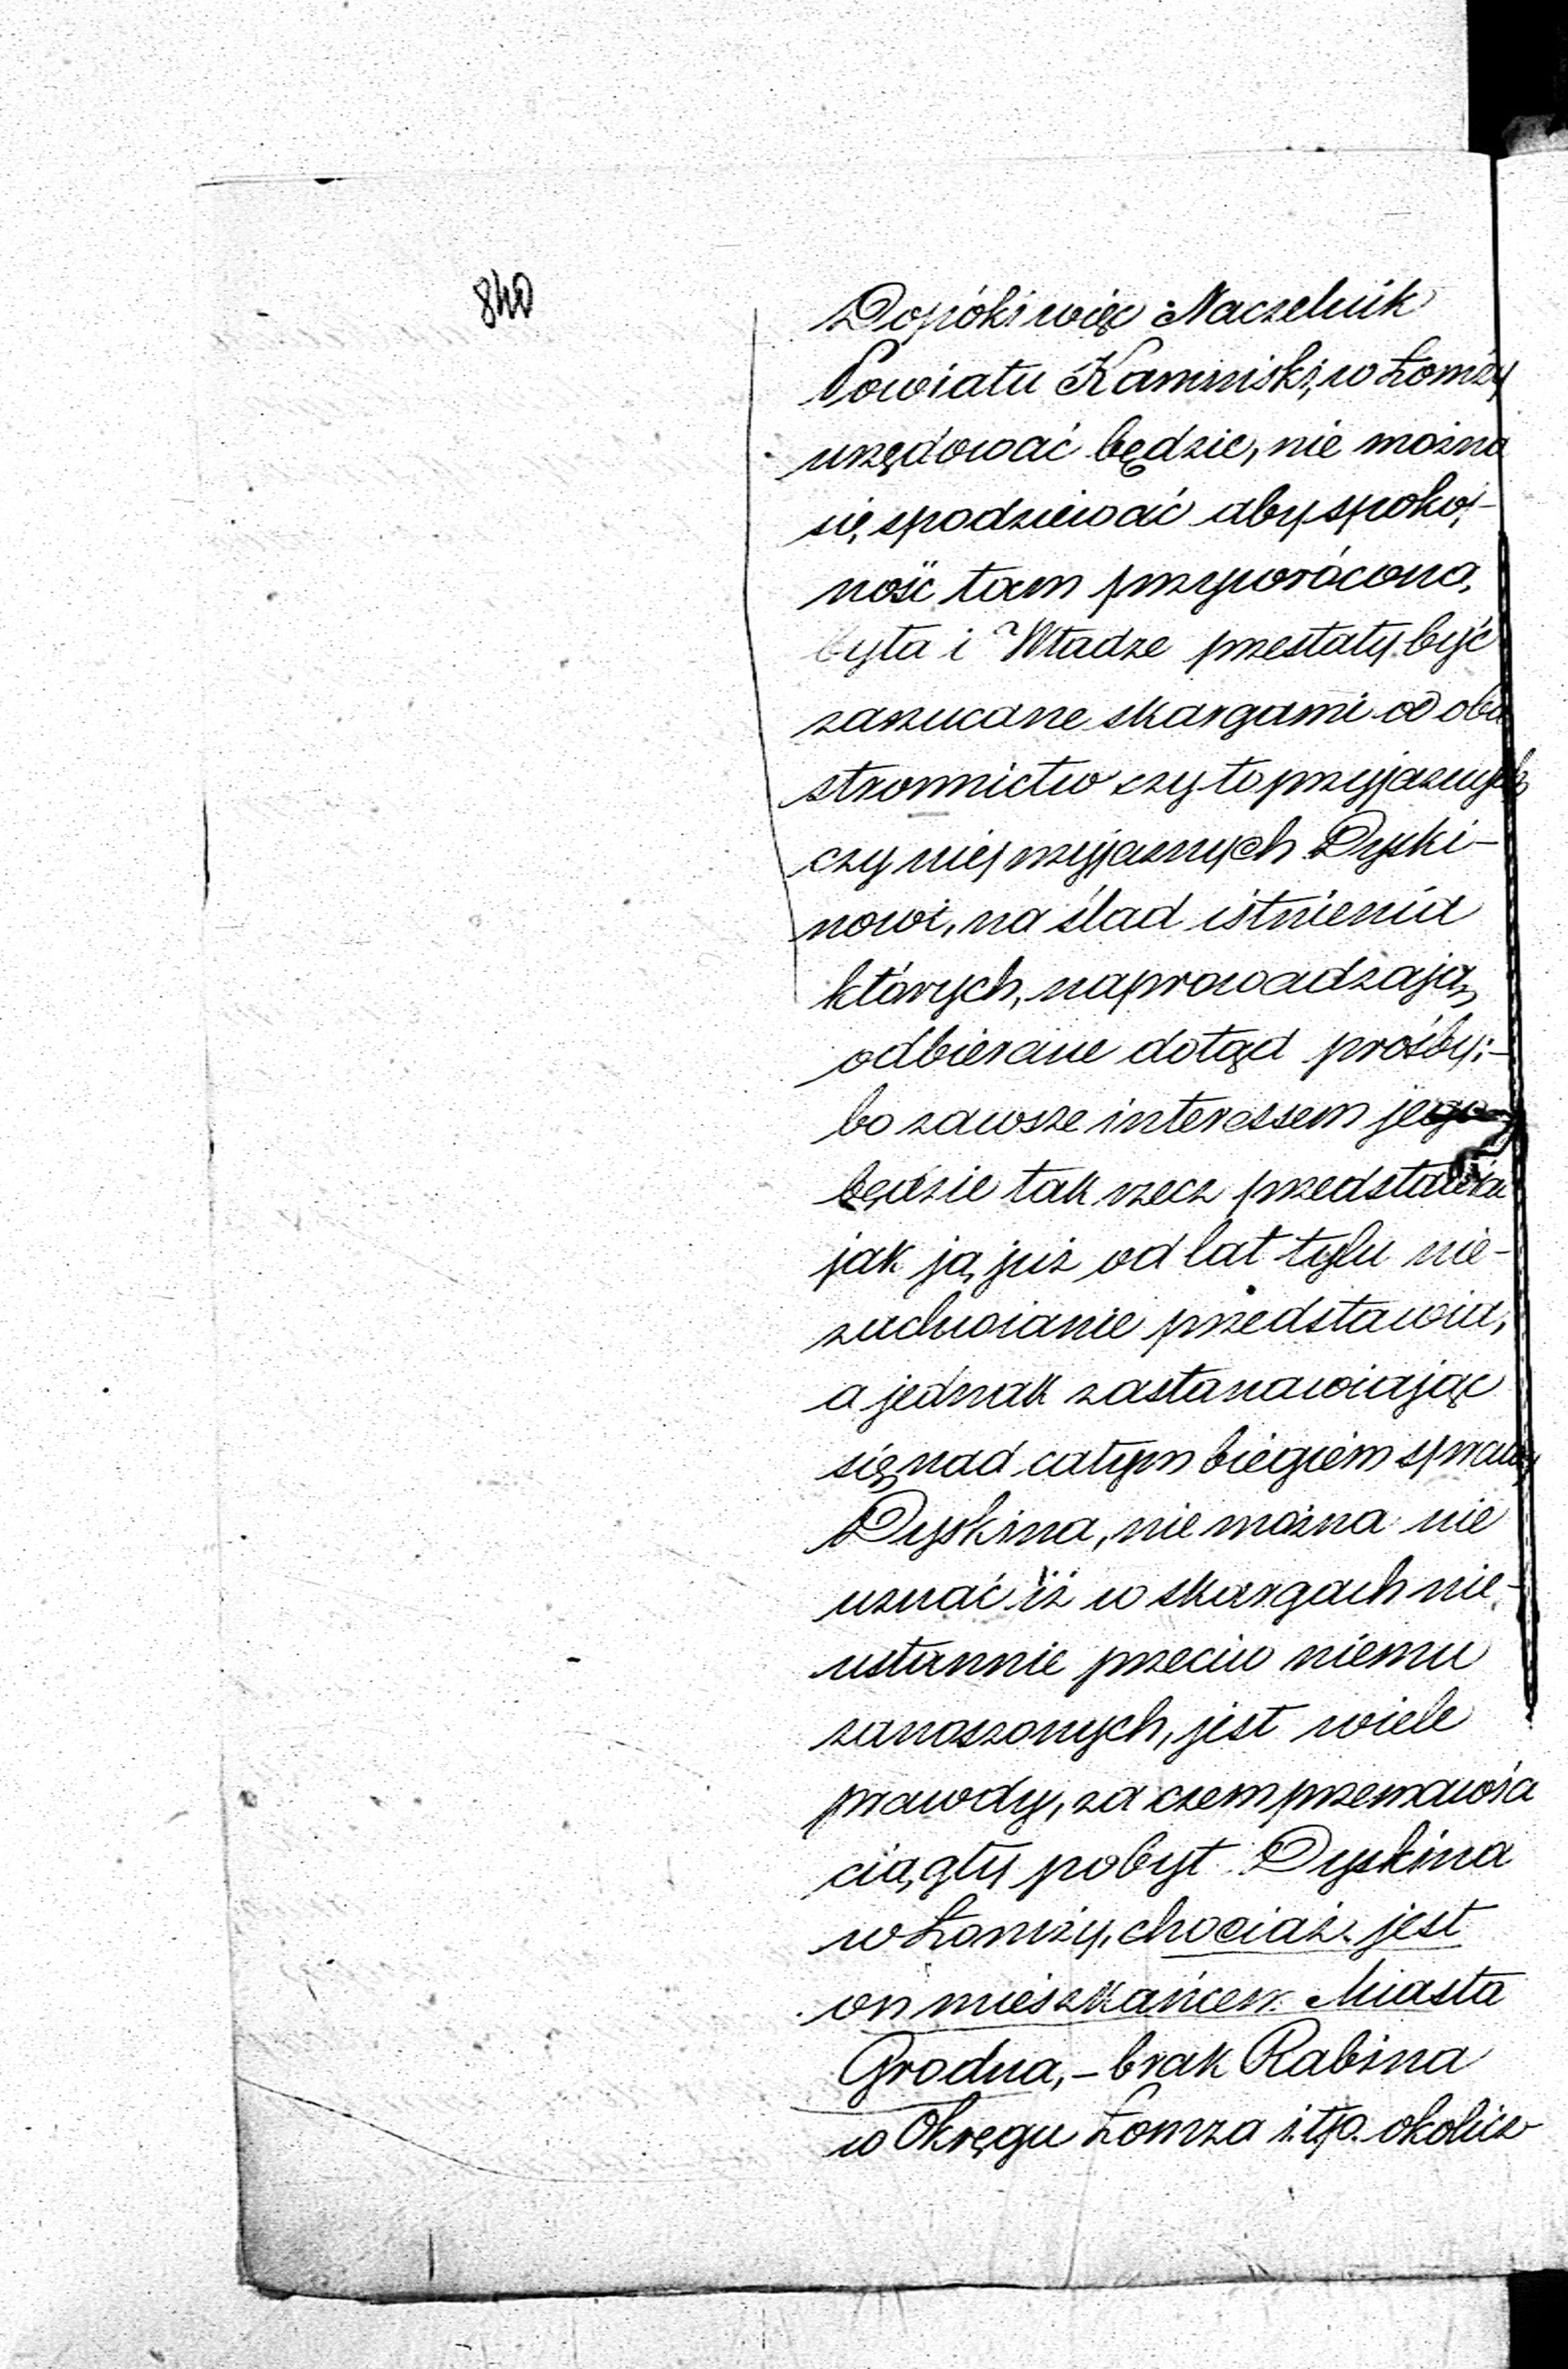 840
Dopóki więc Naczelnik
Powiatu Kamiński, w Łomży
urzędować będzie, nie można
się spodziewać aby spokoj-
ność tam przywrócona,
była i Władze przestały być
zarzucane skargami od obu
stronnictw czy to przyjaznych
czy nieprzyjaznych Dyski-
nowi, na ślad istnienia
których, naprowadzają
odbierane dotąd prośby;-
bo zawsze interessem jego
będzie tak rzecz przedstawiać
jak ją już od lat tylu nie-
zachwianie przedstawia,
a jednak zastanawiając
się nad całym biegiem sprawy
Dyskina, nie można nie
uznać iż w skargach nie-
ustannie przeciw niemu
zanoszonych, jest wiele
prawdy, za czem przemawia
ciągły pobyt Dyskina
w Łomży, chociaż jest
on mieszkańcem Miasta
Grodna, – brak Rabina
w Okręgu Łomża i.t.p. okolicz-